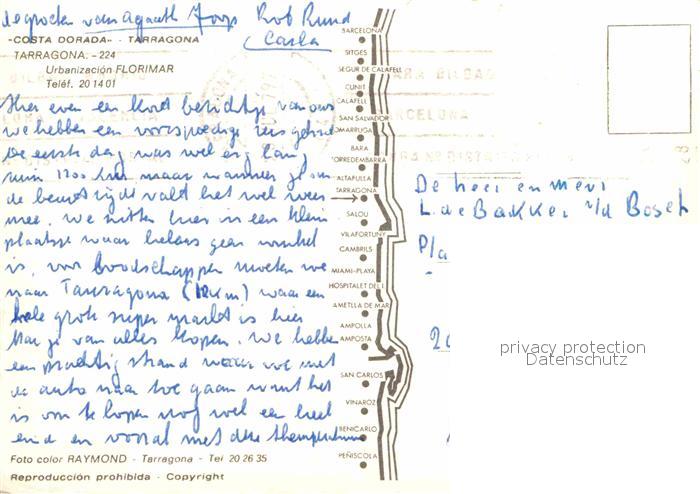 de groeten van Agaath Joop Rob Ruud
Carla
"COSTA DORADA" - TARRAGONA
TARRAGONA. - 224
Urbanización FLORIMAR
Teléf. 20 14 01
Hier even een kort berichtje van ons
we hebben een voorspoedige reis gehad
De eerste dag was wel erg lang
ruim 1200 km maar wanneer je om
de beurt rijdt valt het wel weer
mee. We zitten hier in een klein
plaatsje waar helaas geen winkel
is, voor boodschappen moeten we
naar Tarragona (12km) waar een
hele grote super markt is hier
kan je van alles kopen. We hebben
een prachtig strand waar we met
de auto naar toe gaan want het
is om te lopen nog wel een heel
eind en vooral met deze
Foto color RAYMOND - Tarragona - Tel 20 26 35
Reproducción prohibida - Copyright
BARCELONA
SITGES
SEGUR DE CALAFELL
CUNIT
CALAFELL
SAN SALVADOR
COMARRUGA
BARA
TORREDEMBARRA
ALTAFULLA
TARRAGONA
SALOU
VILAFORTUNY
CAMBRILS
MIAMI-PLAYA
HOSPITALET DEL I.
AMETLLA DE MAR
AMPOLLA
AMPOSTA
SAN CARLOS
VINAROZ
BENICARLO
PEÑISCOLA
BARCELONA
De heer en mevr
L. de Bakker v/d Bosch
Pla
privacy protection
Datenschutz